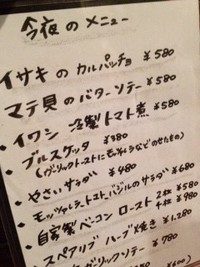 今夜の メニュー
イサキ の カルパッチョ ¥580
マテ貝 の バターソテー ¥580
・イワシ 冷製 トマト煮 ¥580
・ブルスケッタ ¥380
(ガーリックトーストに
・やさい サラダ ¥480
・モッツァレラ、トマト、バジルの サラダ ¥680
・自家製 ベーコン ロースト 2枚 ¥580
4枚 ¥980
・スペアリブ ハーブ焼き ¥1,280
ガーリックソテー ¥780